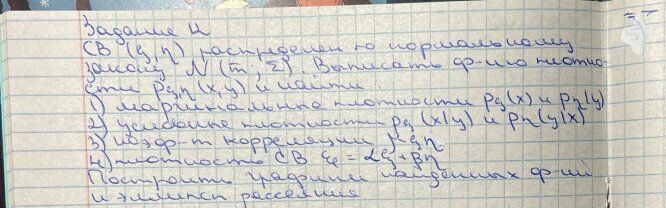 Задание 4
СВ (ξ, η) распределен по нормальному
закону N (m̄, Σ). Выписать ф-ию плотно-
сти Pξη(x,y) и найти:
1) маргинальные плотности Pξ(x) и Pη(y)
2) условные плотности Pξ(x|y) и Pη(y|x)
3) коэф-т корреляции ρξη
4) плотность СВ φ = αξ + βη
Построить графики найденных ф-ий
и эллипсы рассеяния